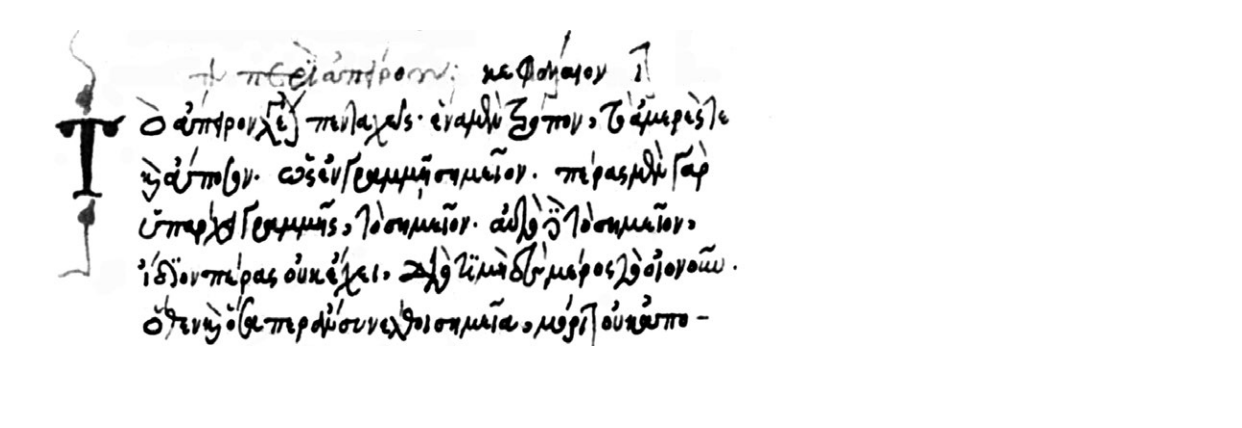 περὶ ἀπείρου κεφάλαιον
Τὸ ἄπειρον λέγεται πενταχῶς· ἕνα μὲν τρόπον, τὸ ἀμερές τε
καὶ ἄποσον. ὡς ἐν γραμμῇ σημεῖον. πέρας μὲν γὰρ
ὑπάρχει γραμμῆς, τὸ σημεῖον. αὐτὸ δὲ τὸ σημεῖον,
ἴδιον πέρας οὐκ ἔχει, μέρος οἱονοῦν.
ὅθεν καὶ ὅσα περ ἂν συνέλθοι σημεῖα, οὐκ ἀπο-